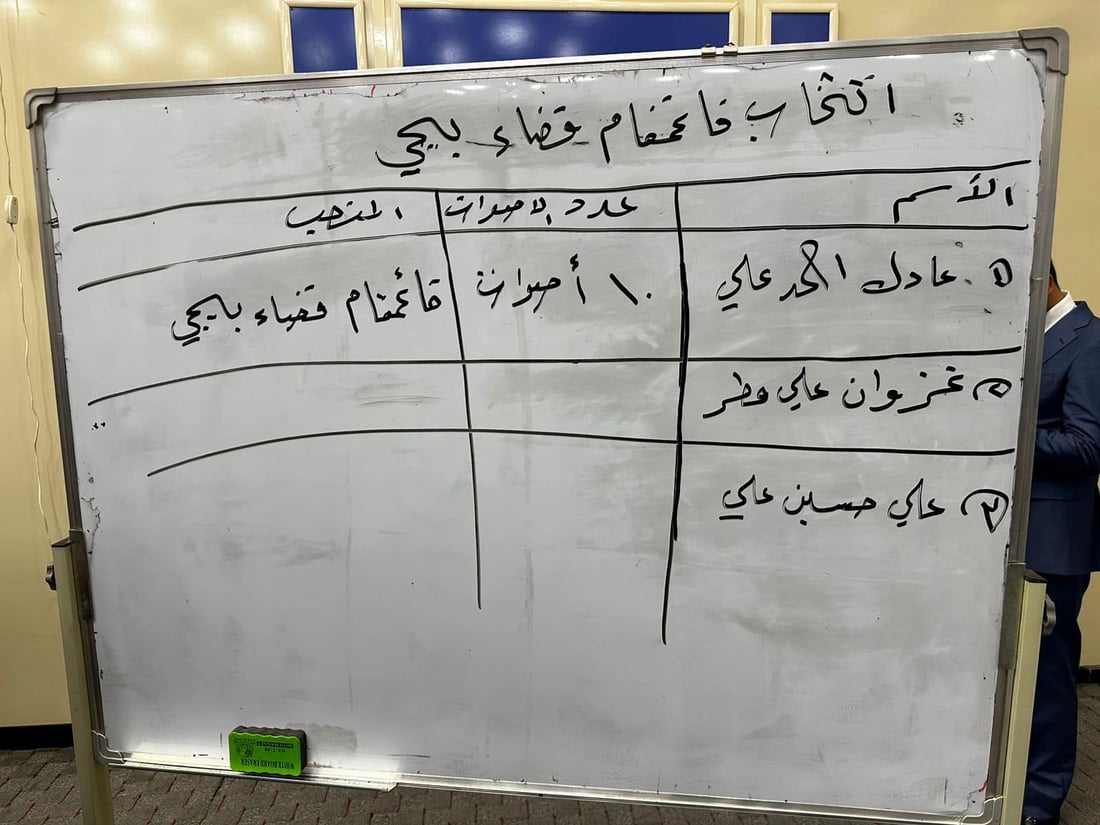 انتخاب قائممقام قضاء بيجي
الأسم عدد الاصوات المنصب
١. عادل احمد علي ١٠ أصوات قائممقام قضاء بيجي
٢ غزوان علي مطر
٣ علي حسين علي
WRITE BOARD ERASER